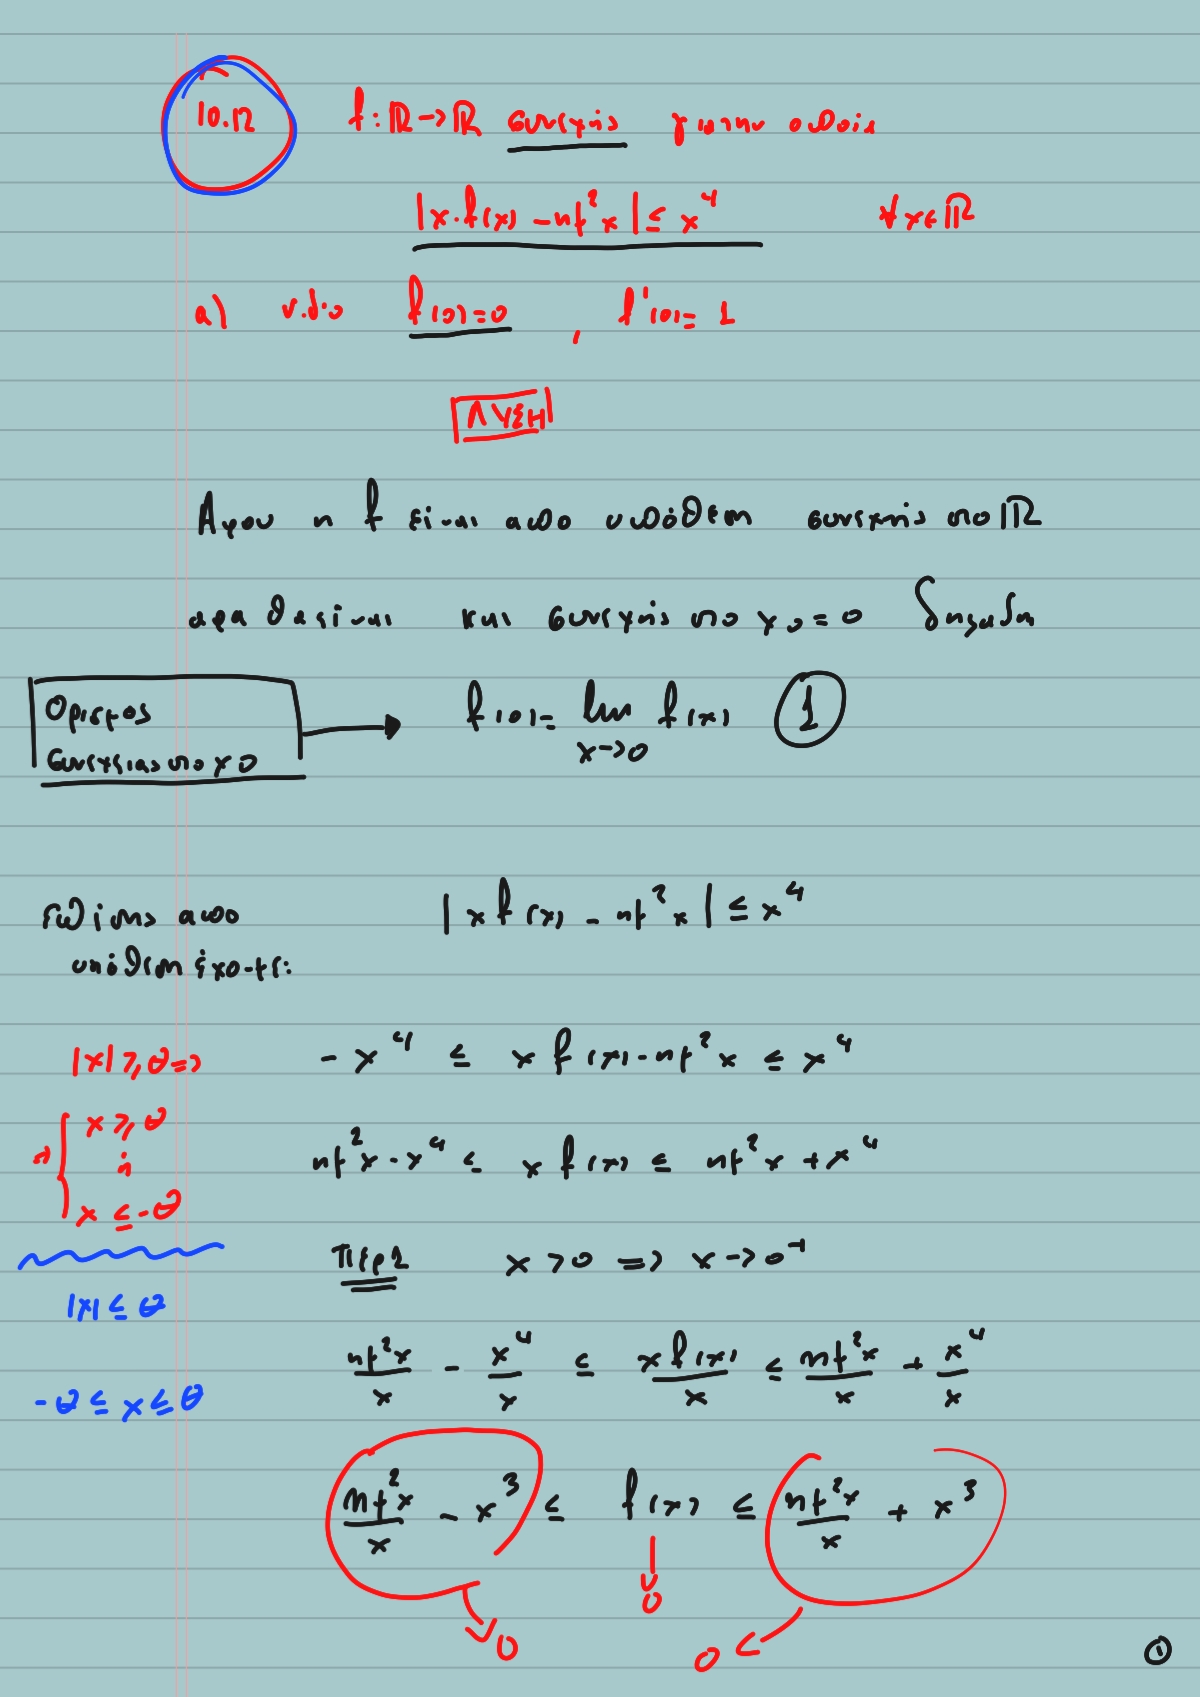 10.12 f: ℝ → ℝ συνεχής για την οποία
|x·f(x) - ημ²x| ≤ x⁴ ∀x∈ℝ
α) ν.δ.ο f(0)=0 , f'(0)=1
ΛΥΣΗ
Αφου η f είναι απο υπόθεση συνεχης στο ℝ
αρα θα είναι και συνεχής στο x₀=0 δηλαδη
Ορισμος συνεχειας στο x0 → f(0)= lim x→0 f(x) ①
Επίσης απο υπόθεση έχουμε: |x f(x) - ημ²x| ≤ x⁴
|x| ≥ θ => -x⁴ ≤ x f(x) - ημ²x ≤ x⁴
=> { x ≥ θ ή x ≤ -θ
ημ²x - x⁴ ≤ x f(x) ≤ ημ²x + x⁴
Περ1 x > 0 => x → 0⁺
|x| ≤ θ
-θ ≤ x ≤ θ
ημ²x/x - x⁴/x ≤ x f(x)/x ≤ ημ²x/x + x⁴/x
ημ²x/x - x³ ≤ f(x) ≤ ημ²x/x + x³
0 0 0
①